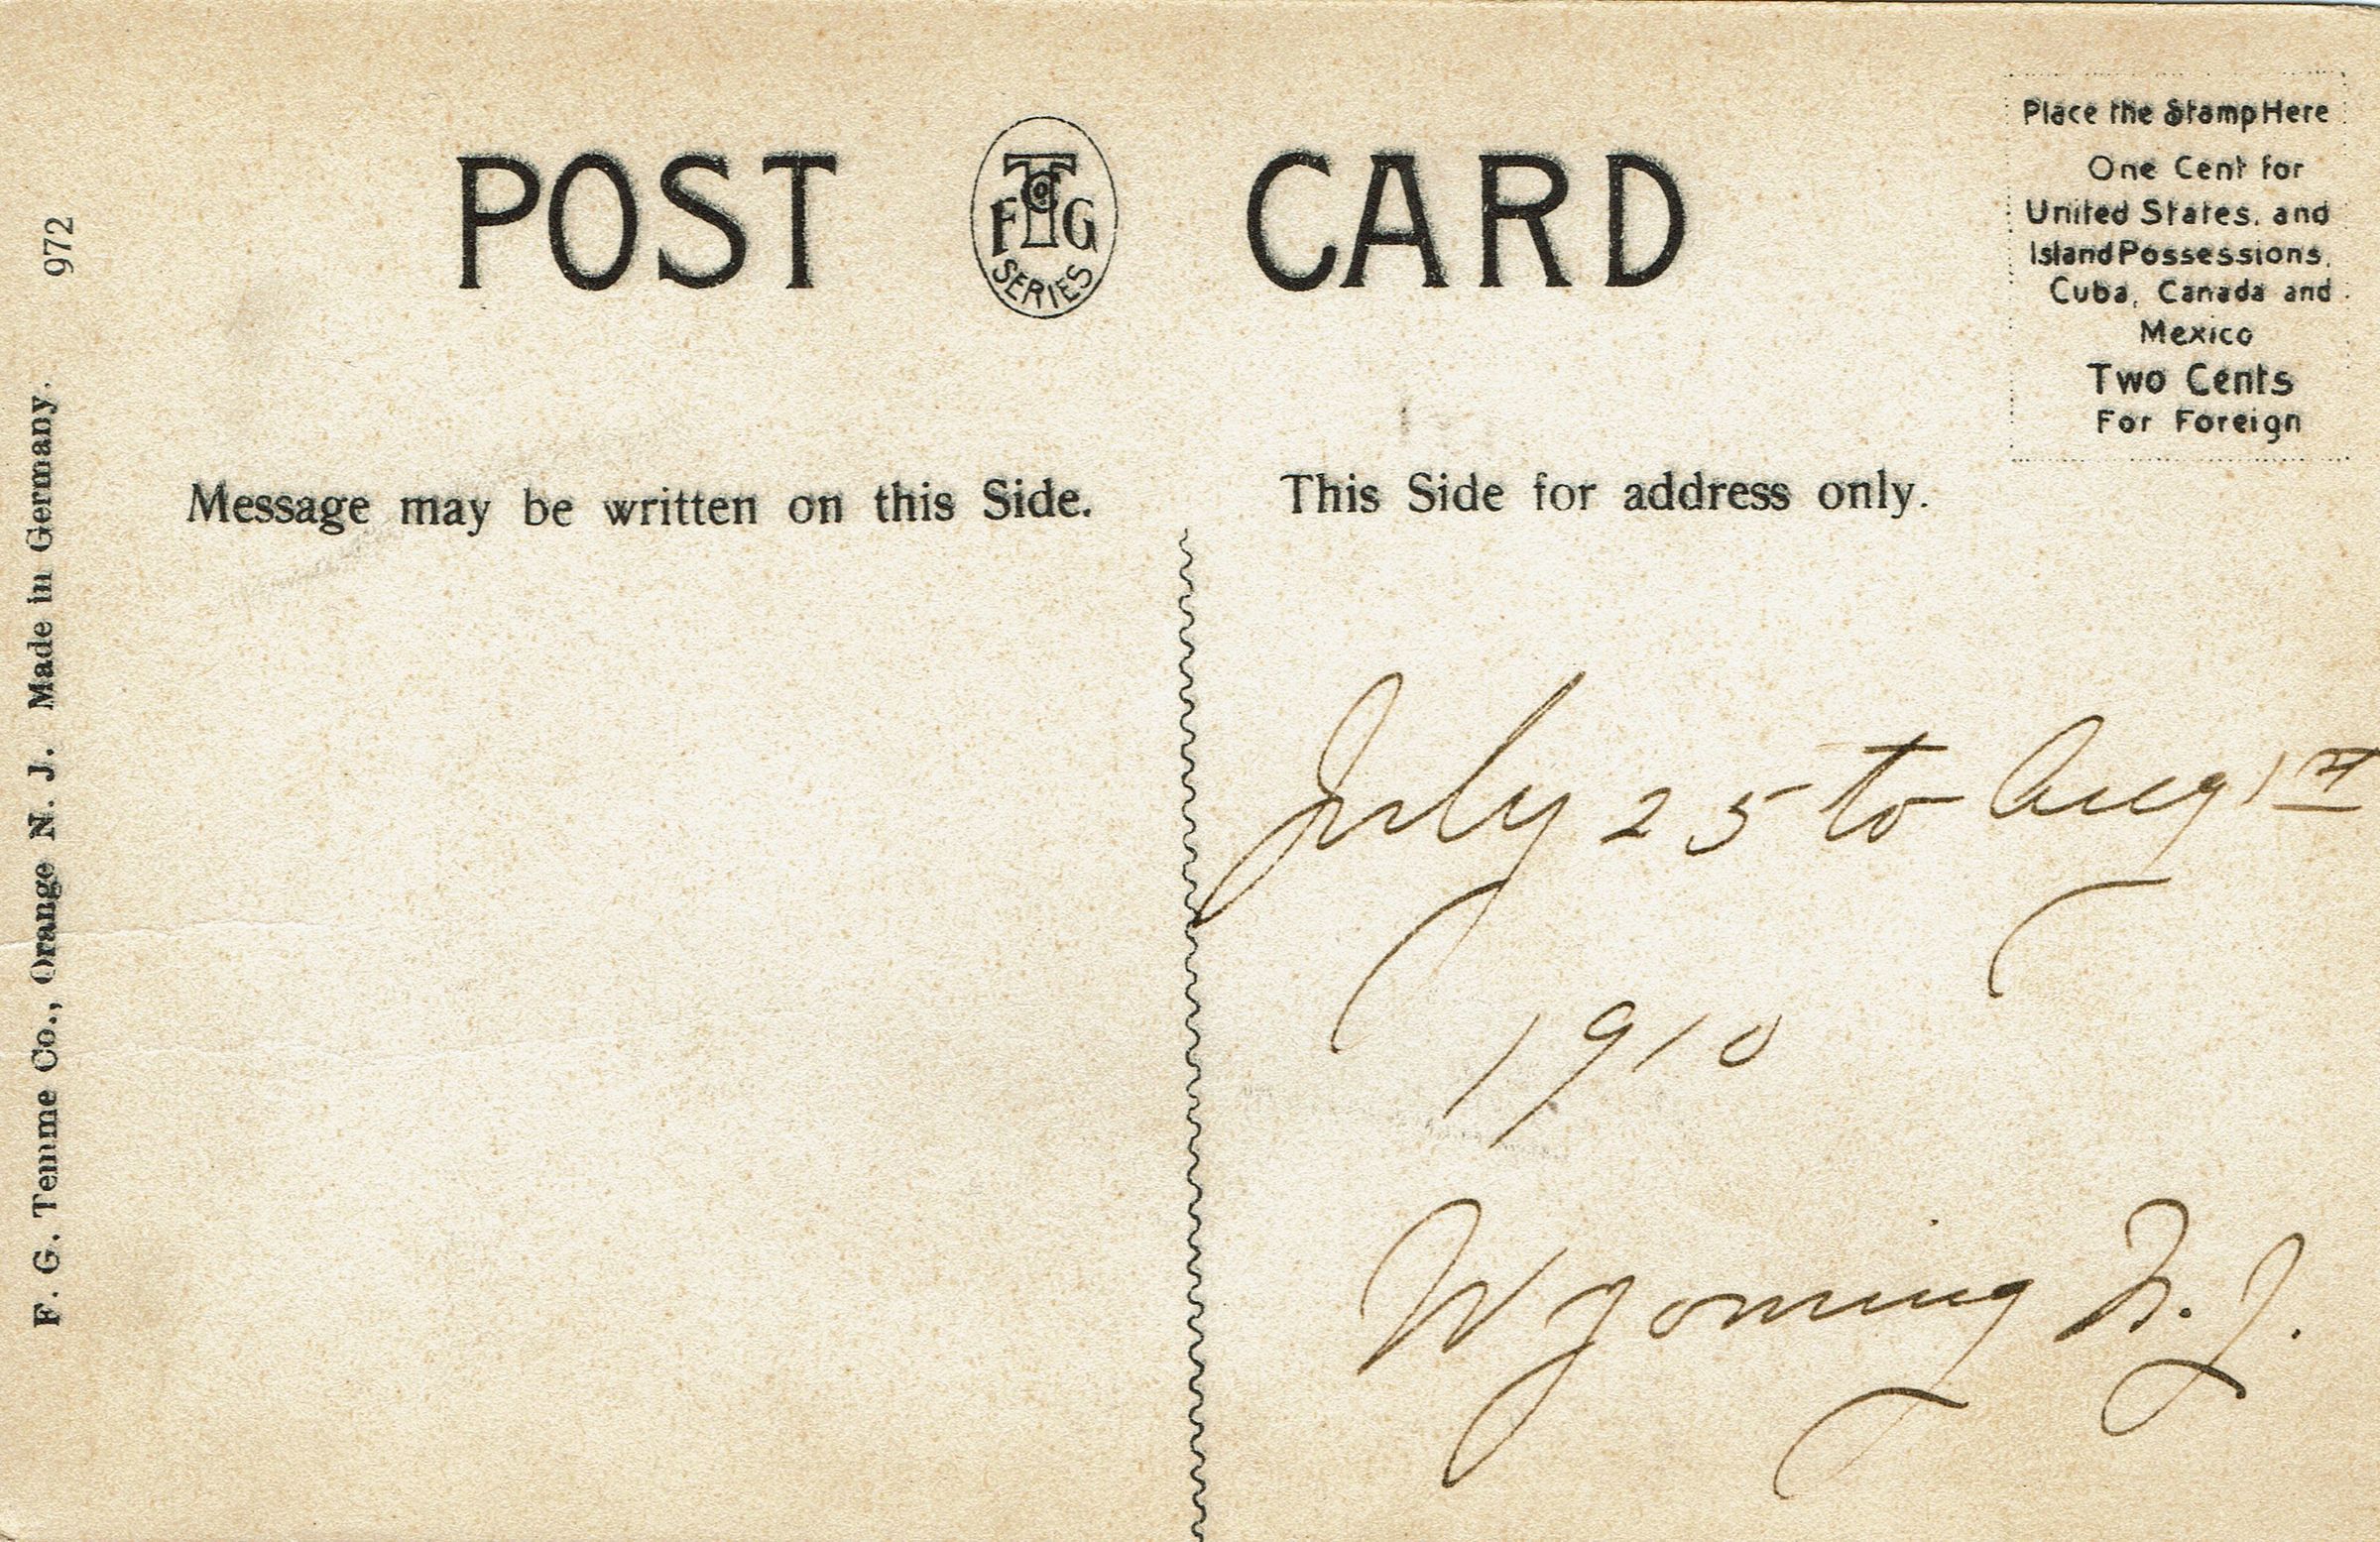 POST CARD
F T G
Co
SERIES
Place the Stamp Here
One Cent for
United States. and
Island Possessions,
Cuba, Canada and
Mexico
Two Cents
For Foreign
Message may be written on this Side.
This Side for address only.
F. G. Temme Co., Orange N. J. Made in Germany.
972
July 25 to Aug 1st
1910
Wyoming N.J.